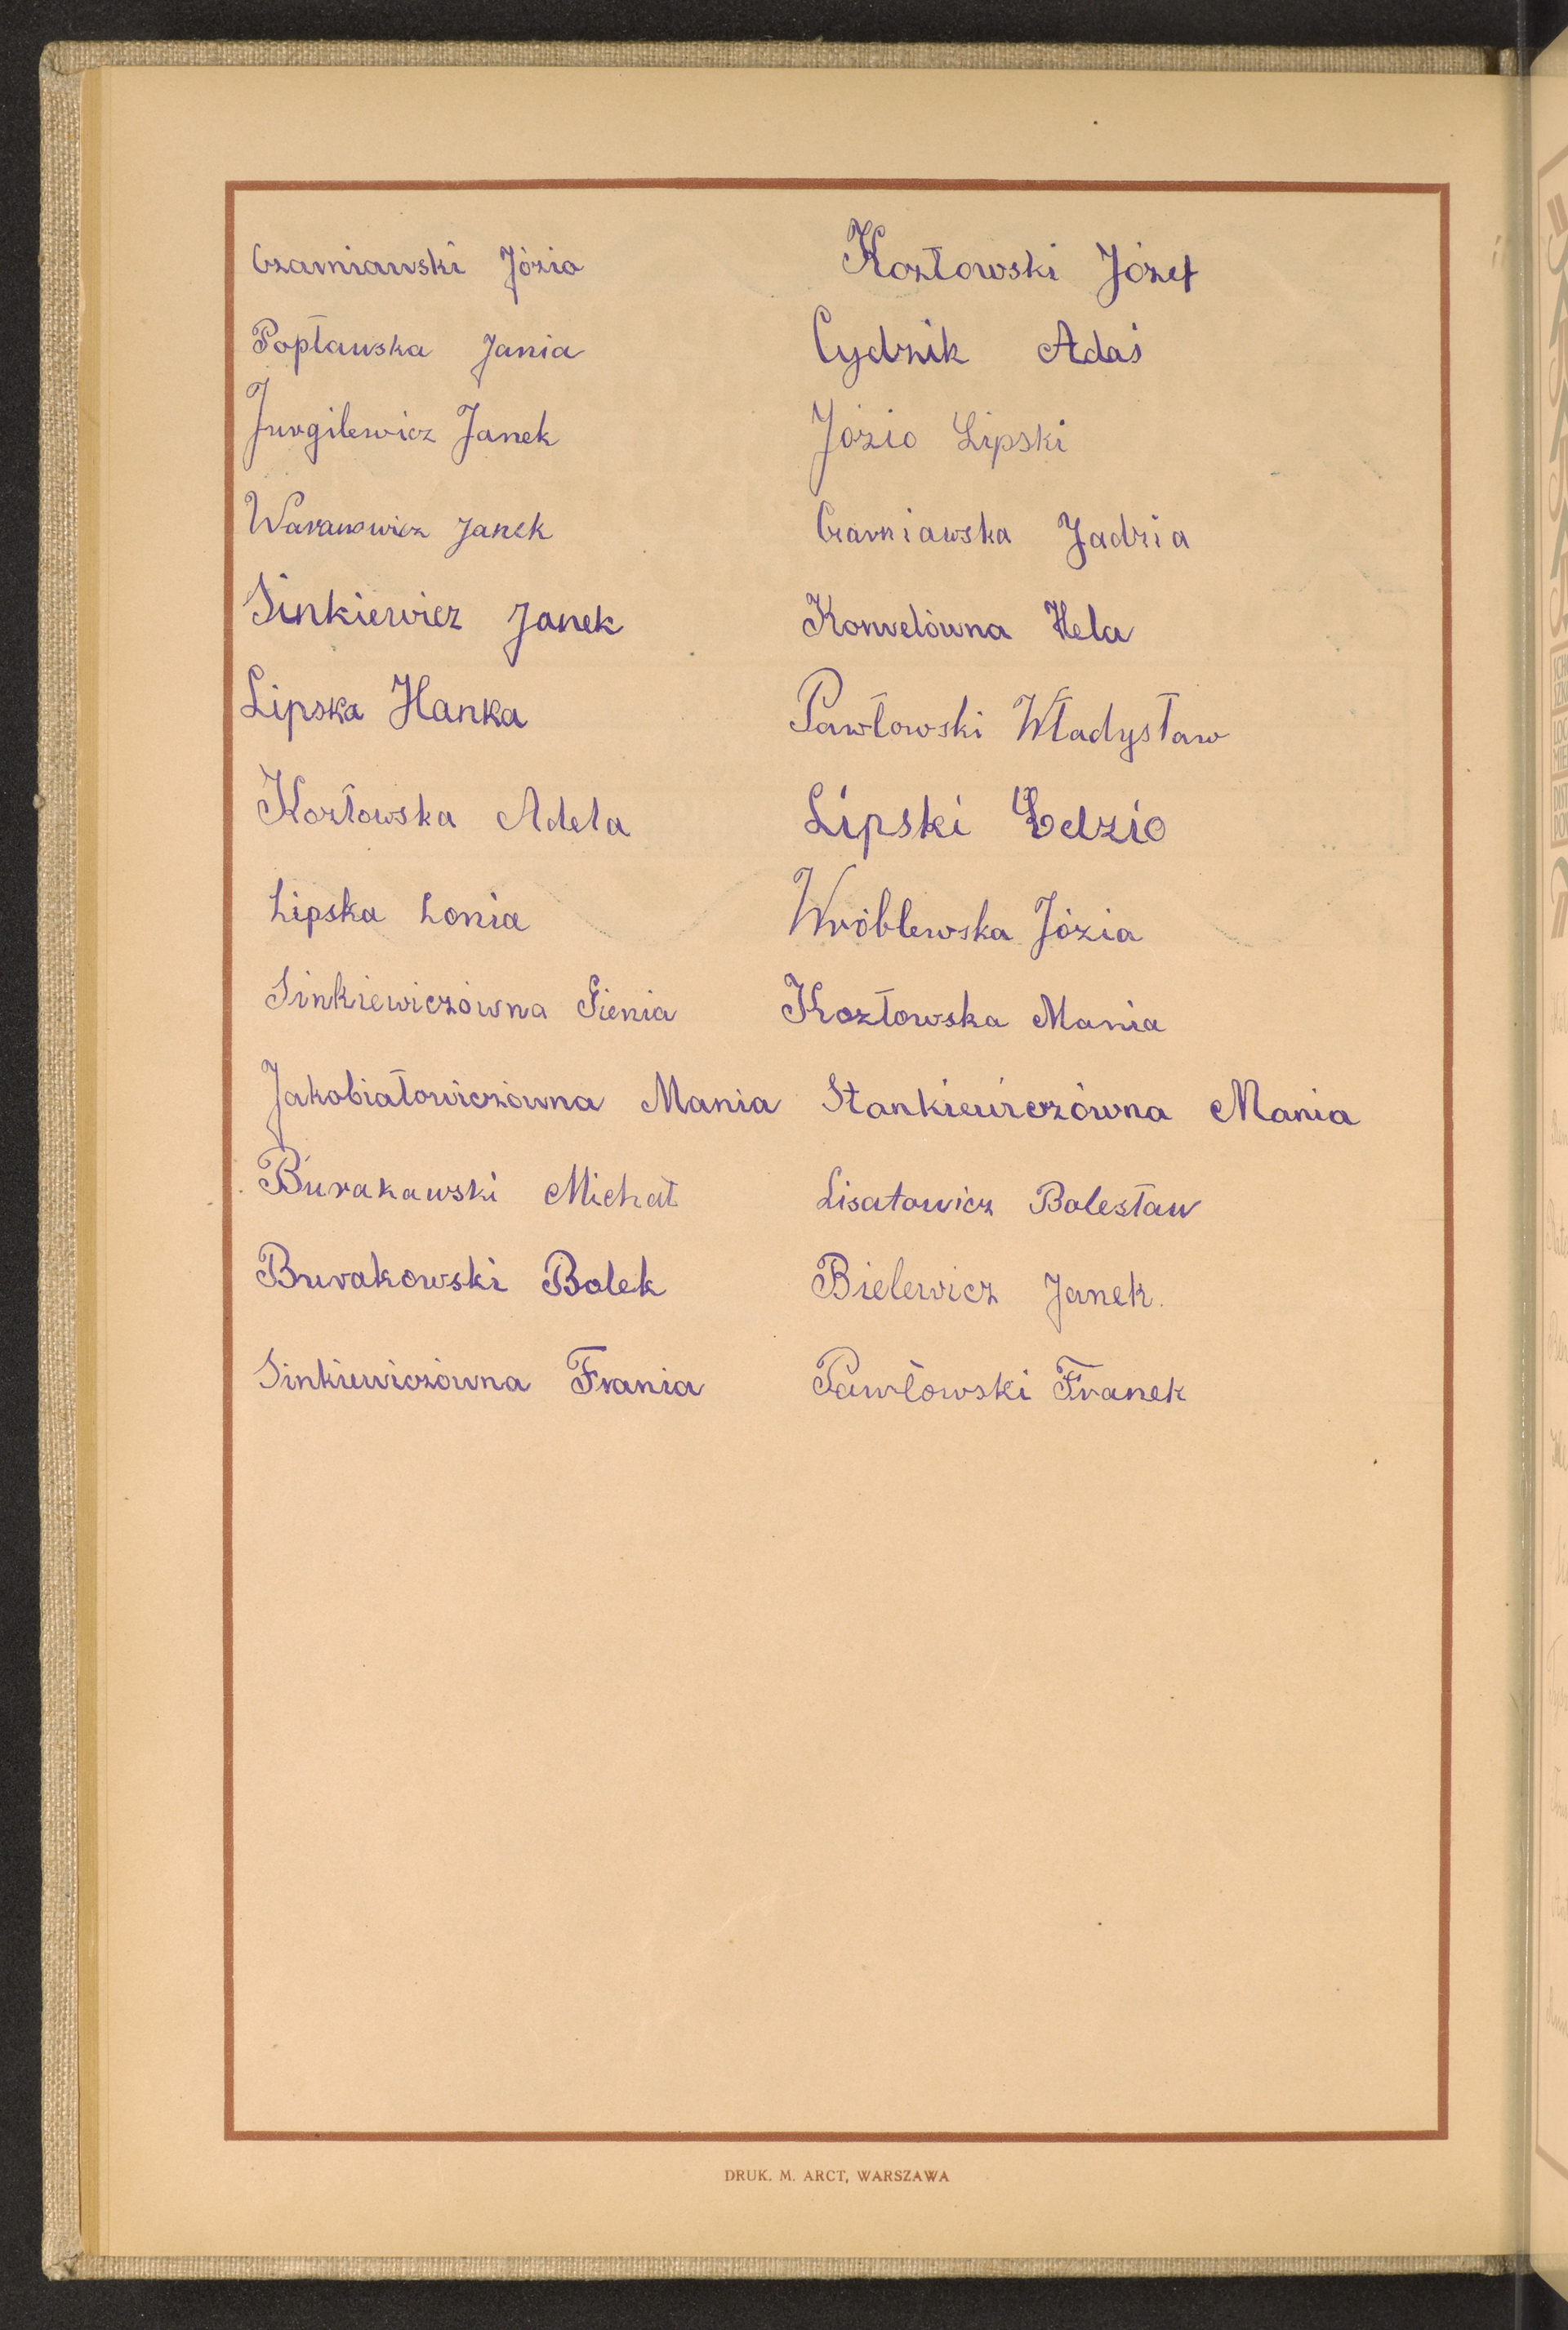 Czarniawski Józio
Popławska Jania
Jurgilewicz Janek
Waranowicz Janek
Sinkiewicz Janek
Lipska Hanka
Kozłowska Adela
Lipska Lonia
Sinkiewiczówna Gienia
Jakobiałowiczówna Mania
Burakawski Michał
Burakowski Bolek
Sinkiewiczówna Frania
Kozłowski Józef
Cydzik Adaś
Józio Lipski
Czarniawska Jadzia
Korwelówna Hela
Pawłowski Władysław
Lipski Edzio
Wróblewska Józia
Kozłowska Mania
Stankiewiczówna Mania
Lisatowicz Bolesław
Bielewicz Janek.
Pawłowski Franek
DRUK. M. ARCT, WARSZAWA